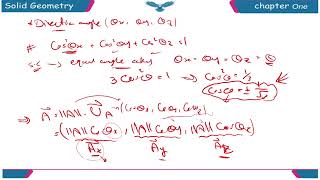 Solid Geometry
chapter One
* Direction angle (θx, θy, θz)
# Cos²θx + Cos²θy + Cos²θz = 1
S.C → equal angle axes θx = θy = θz = θ
3 Cos²θ = 1 → Cos²θ = 1/3
Cosθ = ± 1/√3
⇒ A = ||A|| · U_A (Cosθx, Cosθy, Cosθz)
= (||A|| Cosθx, ||A|| Cosθy, ||A|| Cosθz)
Ax Ay Az